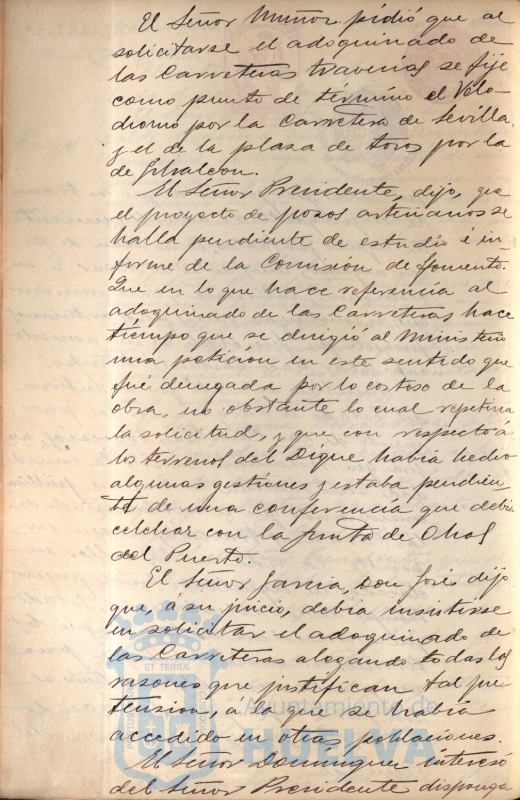 El Señor Muñoz pidió que al
solicitarse el adoquinado de
las Carreteras travesías se fije
como punto de término el Veló-
dromo por la Carretera de Sevilla,
y el de la plaza de toros por la
de Gibraleon.
El Señor Presidente, dijo, que
el proyecto de pozos artesianos se
halla pendiente de estudio é in-
forme de la Comisión de fomento.
Que en lo que hace referencia al
adoquinado de las Carreteras hace
tiempo que se dirigió al Ministerio
una peticion en este sentido que
fué denegada por lo costoso de la
obra, no obstante lo cual repetiria
la solicitud, y que con respecto á
los terrenos del Dique habia hecho
algunas gestiones y estaba pendien-
te de una conferencia que debia
celebrar con la Junta de Obras
del Puerto.
El Señor Garcia, Don José dijo
que, á su juicio, debia insistirse
en solicitar el adoquinado de
las Carreteras alegando todas las
razones que justifican tal pre-
tension, a lo que se habia
accedido en otras poblaciones.
El Señor Dominguez interesó
del Señor Presidente disponga
ET TERRÆ
Ayuntamiento de
HUELVA